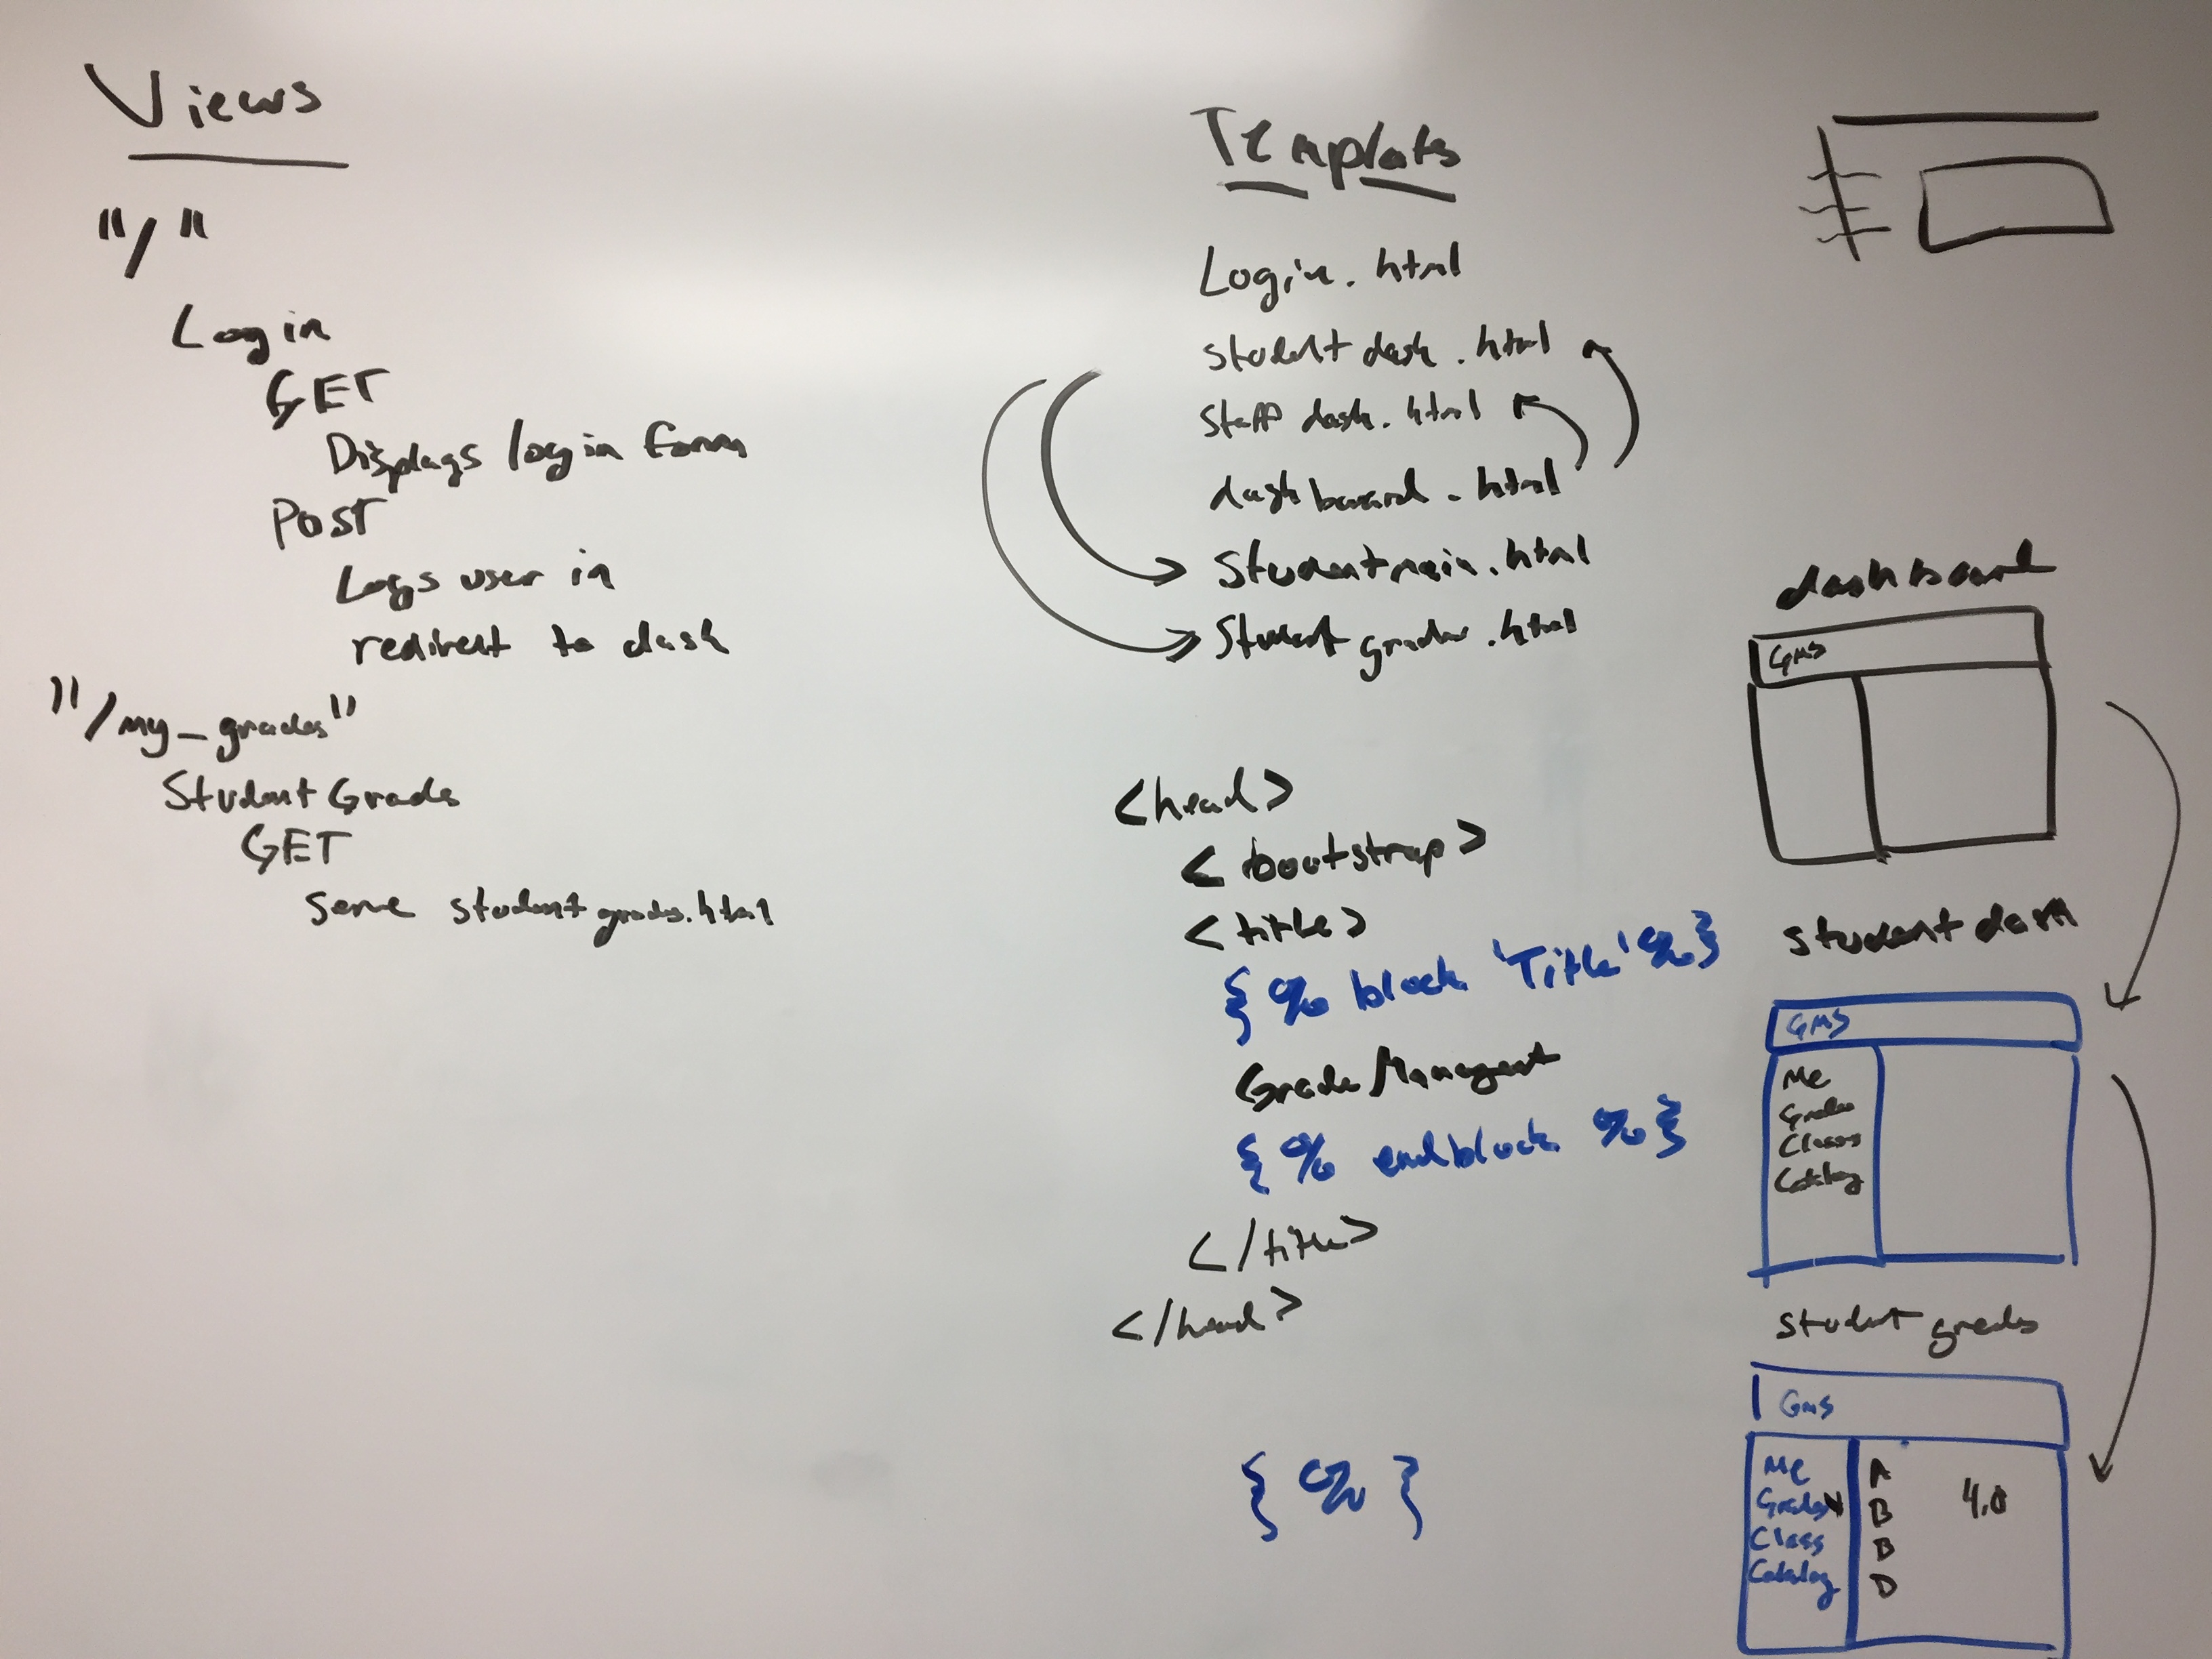 Views
"/"
Login
GET
Displays login form
POST
Logs user in
redirect to dash
"/my_grades"
Student Grades
GET
serve studentgrades.html
Templates
Login.html
studentdash.html
staff dash.html
dashboard.html
Studentmain.html
Student grades.html
<head>
<bootstrap>
<title>
{% block 'Title' %}
Grade Managent
{% endblock %}
</title>
</head>
{% }
dashboard
GMS
student dash
GMS
Me
Grades
Classes
Catalog
student grades
GMS
Me
Grades
Class
Catalog
A
B
B
D
4.0